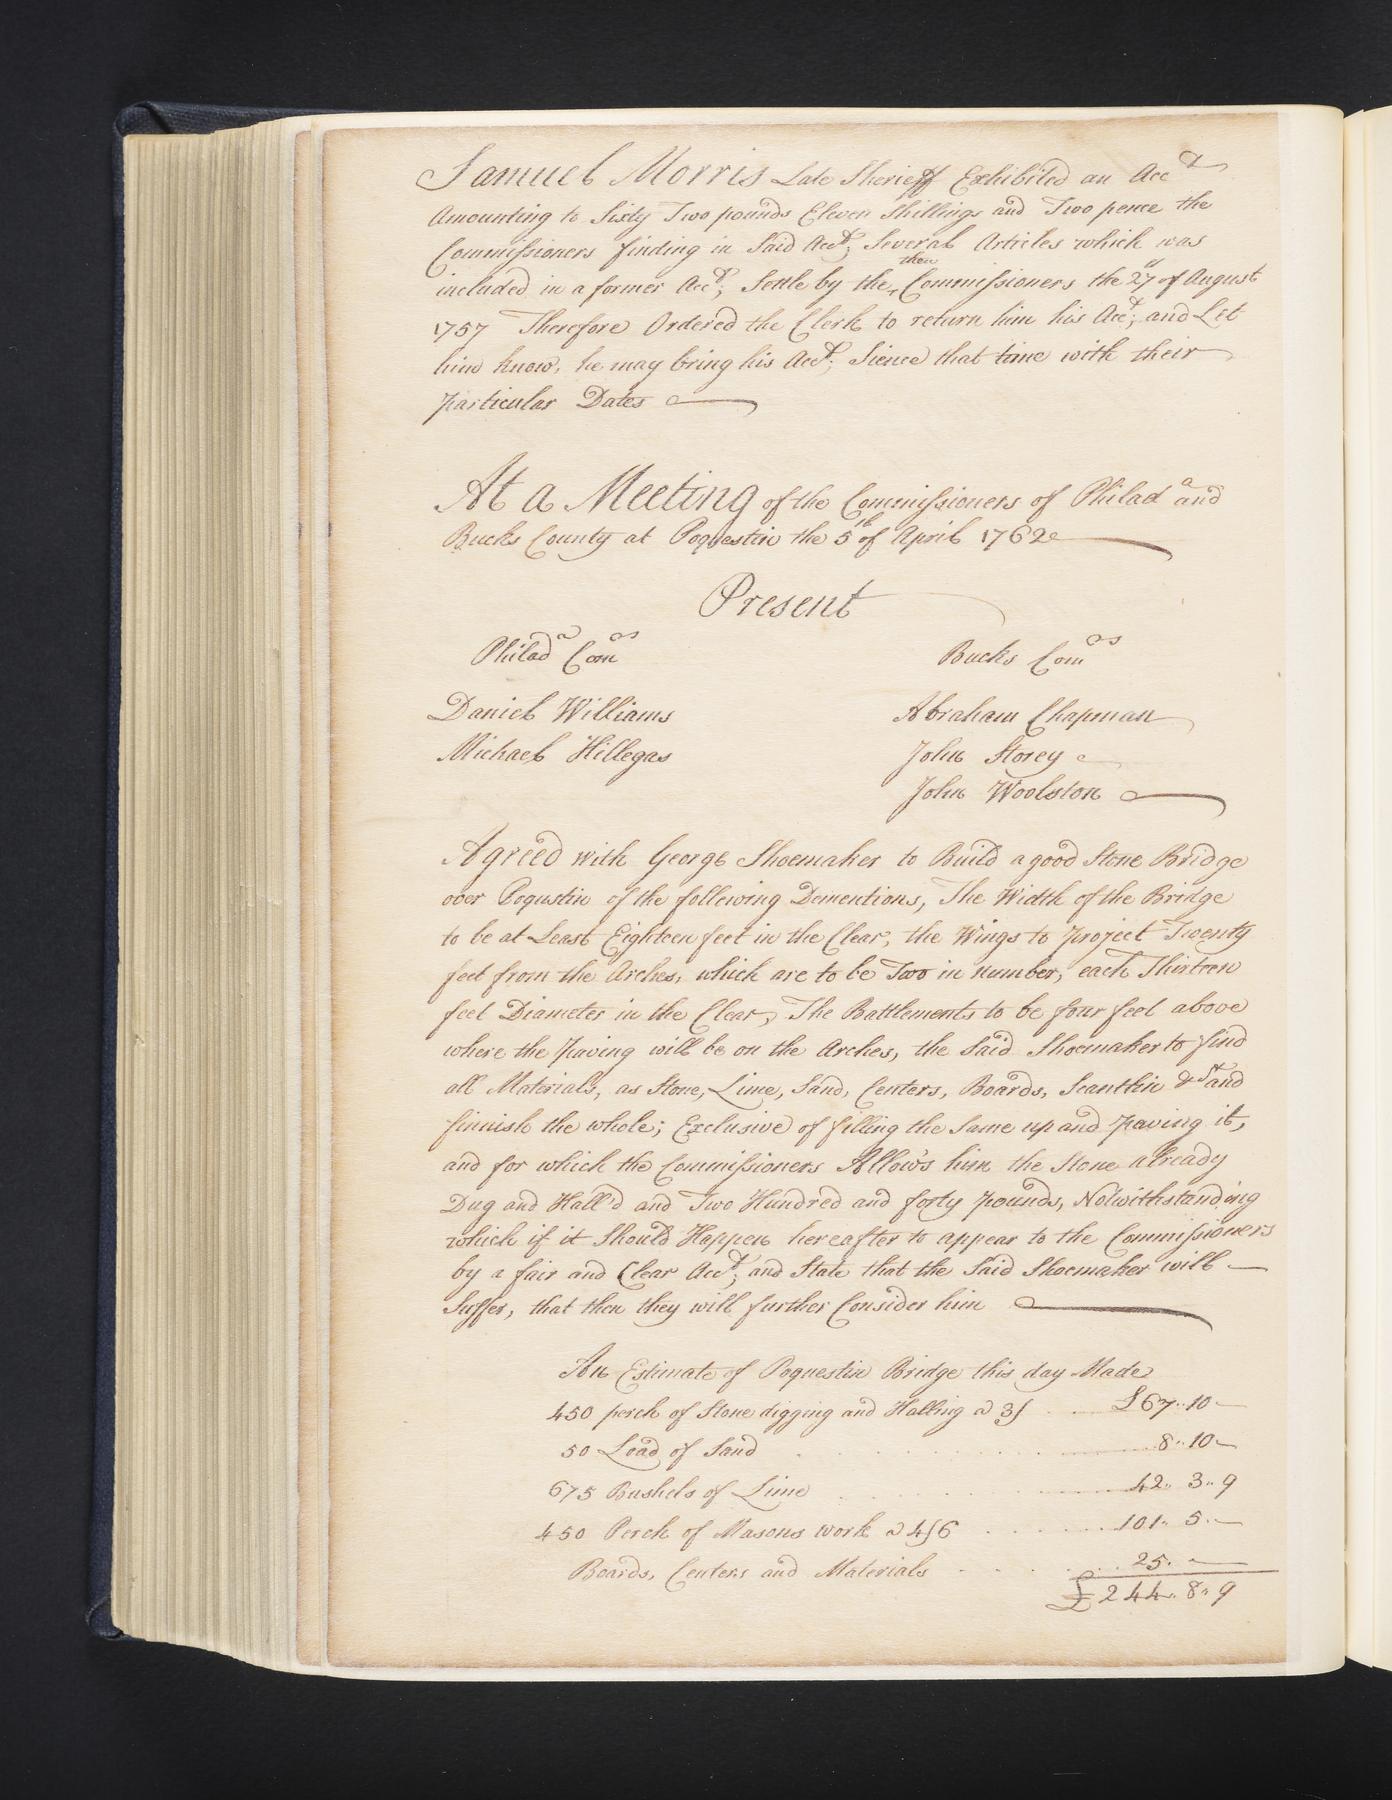 Samuel Morris Late Sherieff Exhibited an Acc.t
Amounting to Sixty Two pounds Eleven Shillings and Two pence the
Commissioners finding in Said Acc.t; Several Articles which was
included in a former Acc.t; Settle by the then Commissioners the 27th of August
1757 Therefore Ordered the Clerk to return him his Acc.t; and Let
him know, he may bring his Acc.t; Sience that time with their
particular Dates
At a Meeting of the Commissioners of Philada and
Bucks County at Poquestin the 5th of April 1762
Present
Philada Comrs
Bucks Comrs
Daniel Williams
Abraham Chapman
Michael Hillegas
John Storey
John Woolston
Agreed with George Shoemaker to Build a good Stone Bridge
over Poqustin of the following Dementions, The Width of the Bridge
to be at Least Eighteen feet in the Clear, the Wings to project Twenty
feet from the Arches, which are to be Two in number, each Thirteen
feet Diameter in the Clear, The Battlements to be four feet above
where the paving will be on the Arches, the Said Shoemaker to find
all Materials, as Stone, Lime, Sand, Centers, Boards, Scantlin &ca and
finnish the whole; Exclusive of filling the Same up and paving it,
and for which the Commissioners Allows him the Stone already
Dug and Hall'd and Two Hundred and forty pounds, Notwithstanding
which if it Should Happen hereafter to appear to the Commissioners
by a fair and Clear Acc.t; and State that the Said Shoemaker will
Suffer, that then they will further Consider him
An Estimate of Poquestin Bridge this day Made
450 perch of Stone digging and Halling a 3/ . . £67..10 —
50 Load of Sand . . . . . 8..10 —
675 Bushels of Lime . . . . . 42.. 3.. 9
450 Perch of Masons work a 4/6 . . . . . 101.. 5.. —
Boards, Centers and Materials . . . . . 25. —
£244.. 8.. 9